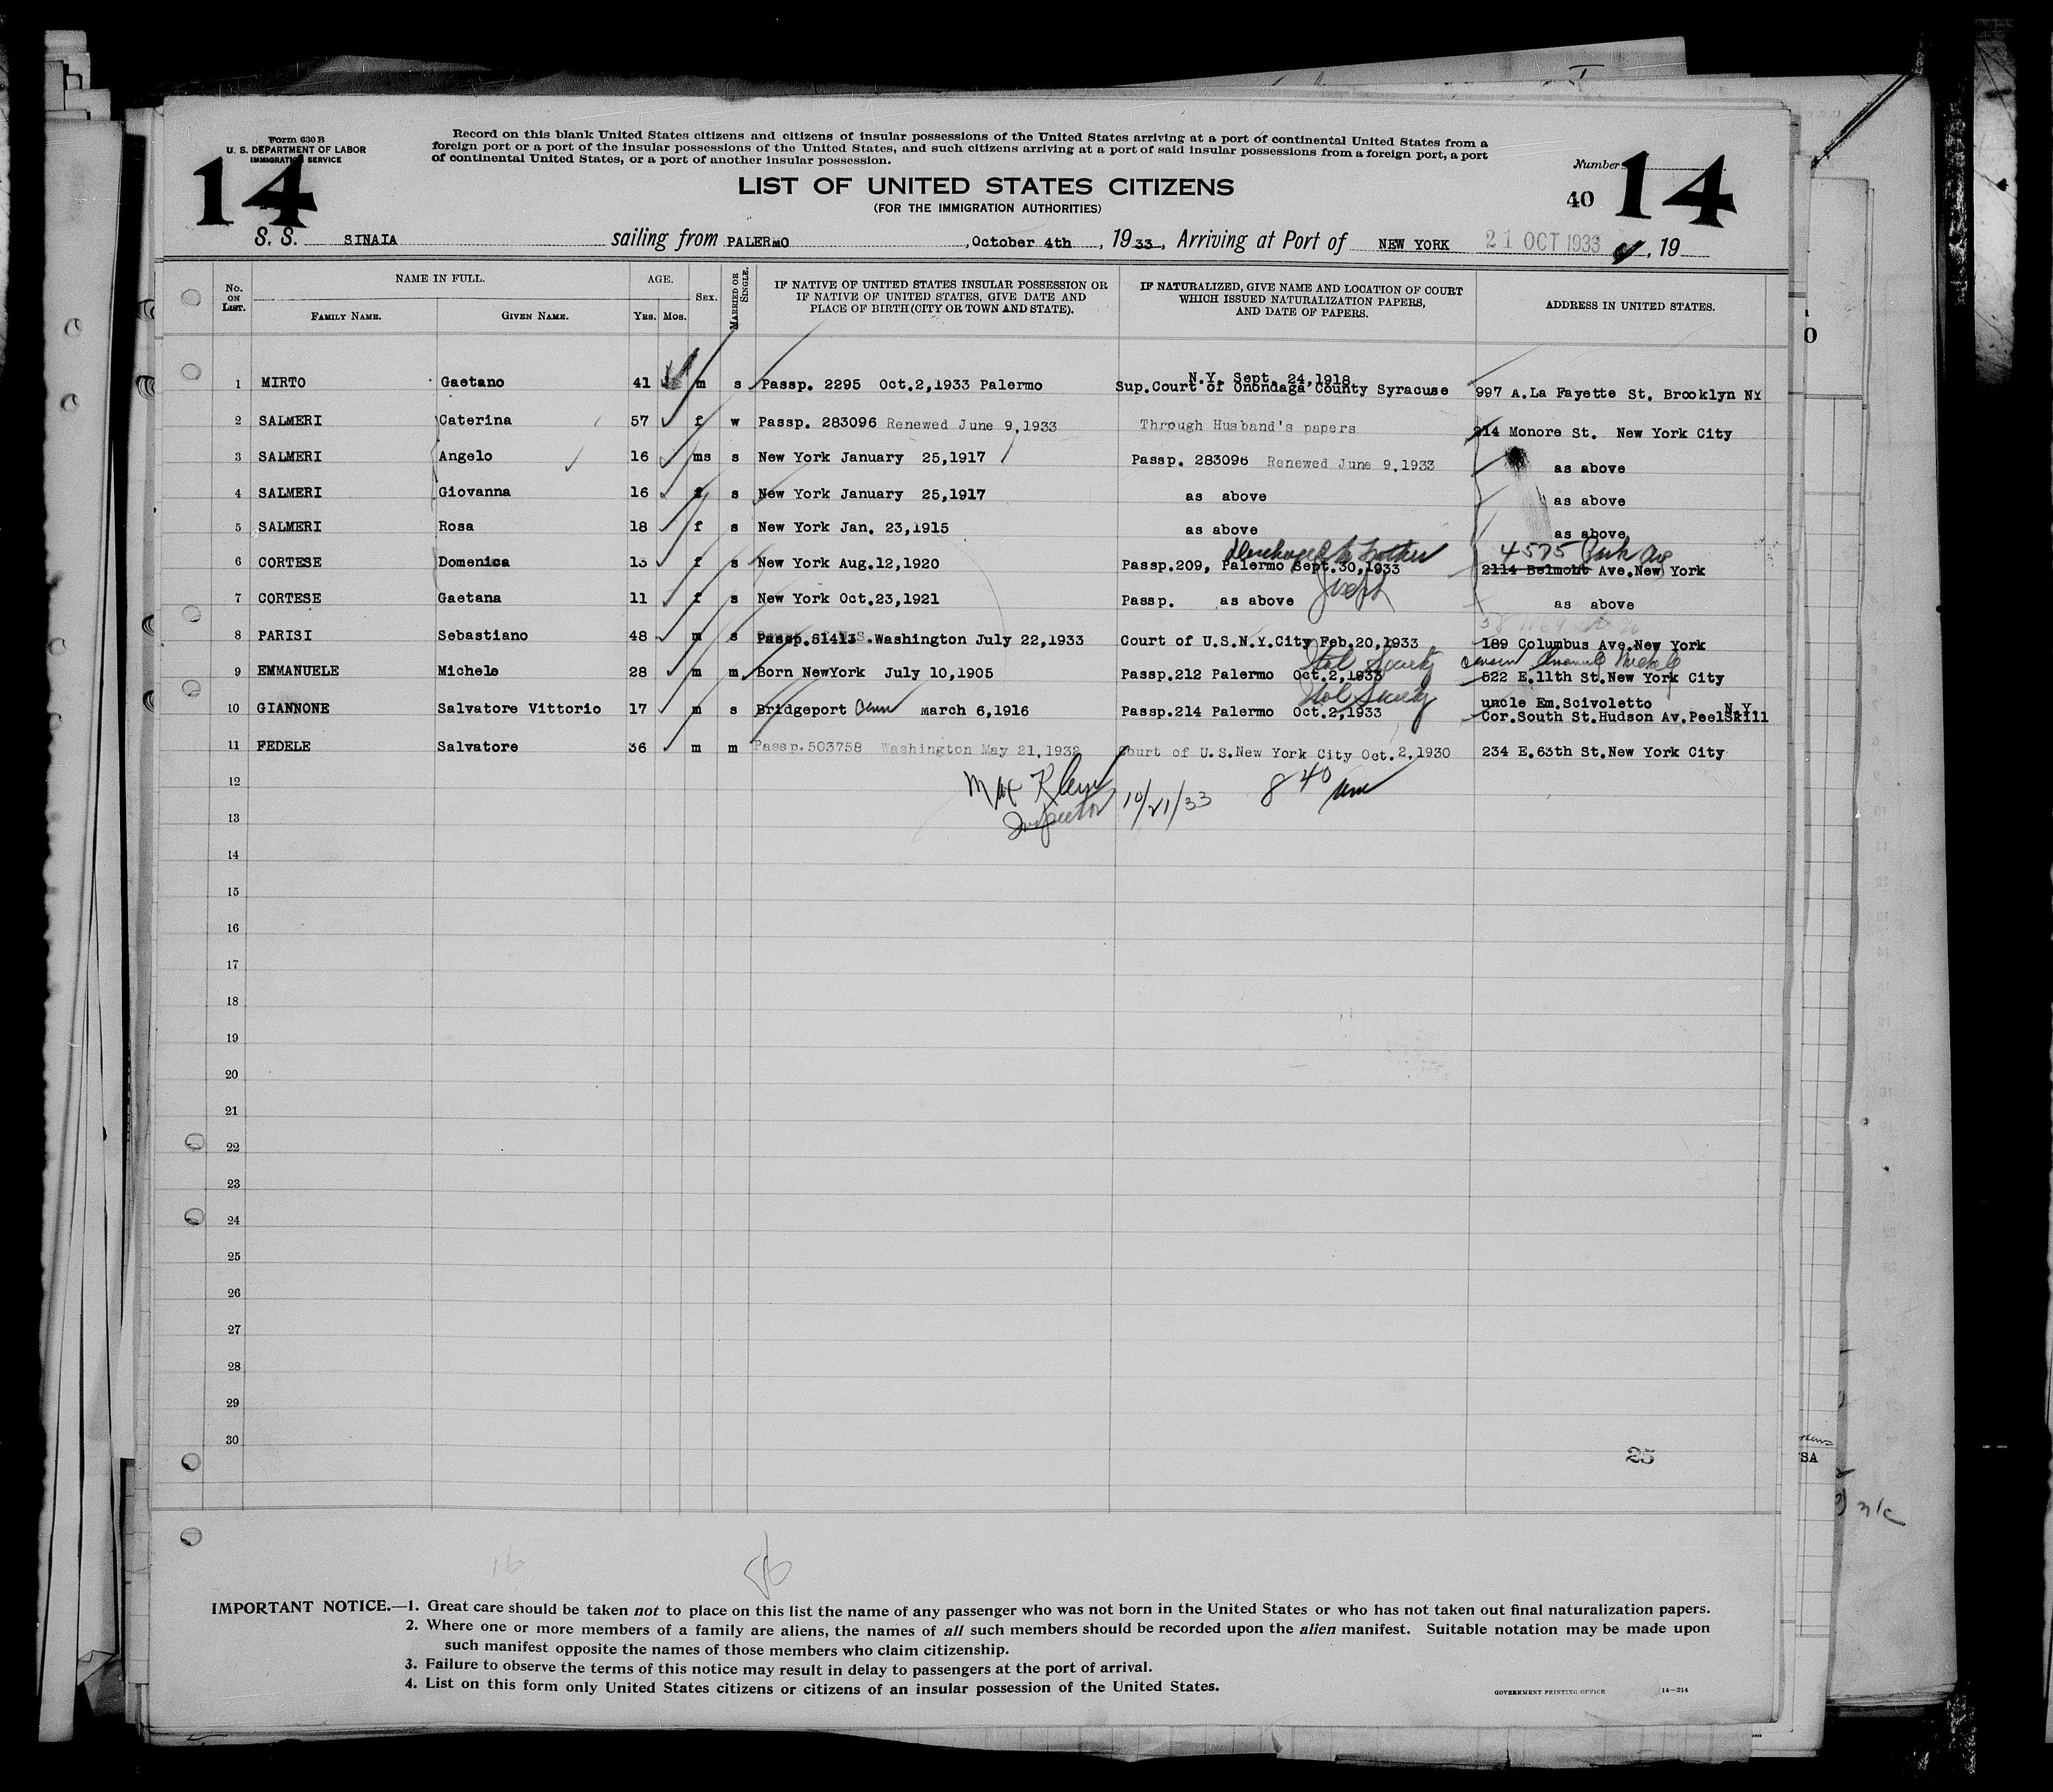 Form 630 B
U. S. DEPARTMENT OF LABOR
IMMIGRATION SERVICE
14
Record on this blank United States citizens and citizens of insular possessions of the United States arriving at a port of continental United States from a
foreign port or a port of the insular possessions of the United States, and such citizens arriving at a port of said insular possessions from a foreign port, a port
of continental United States, or a port of another insular possession.
LIST OF UNITED STATES CITIZENS
(FOR THE IMMIGRATION AUTHORITIES)
Number
40 14
S. S. SINAIA sailing from PALERMO , October 4th , 1933, Arriving at Port of NEW YORK 21 OCT 1933 , 19
No. ON LIST. NAME IN FULL. AGE. SEX. MARRIED OR SINGLE. IF NATIVE OF UNITED STATES INSULAR POSSESSION OR IF NATIVE OF UNITED STATES, GIVE DATE AND PLACE OF BIRTH (CITY OR TOWN AND STATE). IF NATURALIZED, GIVE NAME AND LOCATION OF COURT WHICH ISSUED NATURALIZATION PAPERS, AND DATE OF PAPERS. ADDRESS IN UNITED STATES.
FAMILY NAME. GIVEN NAME. YRS. MOS.
N.Y. Sept. 24,1918
1 MIRTO Gaetano 41 m s Passp. 2295 Oct.2,1933 Palermo Sup.Court of Onondaga County Syracuse 997 A.La Fayette St. Brooklyn NY
2 SALMERI Caterina 57 f w Passp. 283096 Renewed June 9,1933 Through Husband's papers 214 Monore St. New York City
3 SALMERI Angelo 16 ms s New York January 25,1917 Passp. 283096 Renewed June 9,1933 as above
4 SALMERI Giovanna 16 f s New York January 25,1917 as above as above
5 SALMERI Rosa 18 f s New York Jan. 23,1915 as above as above
Discharged to Father 4575 Park Ave
6 CORTESE Domenica 13 f s New York Aug.12,1920 Passp.209, Palermo Sept.30,1933 2114 Belmont Ave.New York
Joseph
7 CORTESE Gaetana 11 f s New York Oct.23,1921 Passp. as above as above
8 PARISI Sebastiano 48 m s Passp.51413 .Washington July 22,1933 Court of U.S.N.Y.City Feb.20,1933 189 Columbus Ave.New York
Ital Society cousin Emanuele Michele
9 EMMANUELE Michele 28 m m Born NewYork July 10,1905 Passp.212 Palermo Oct.2,1933 522 E.11th St.New York City
Ital Society uncle Em.Scivoletto N.Y.
10 GIANNONE Salvatore Vittorio 17 m s Bridgeport Conn march 6,1916 Passp.214 Palermo Oct.2,1933 Cor.South St.Hudson Av.PeelSkill
11 FEDELE Salvatore 36 m m Passp.503758 Washington May 21,1932 Court of U.S.New York City Oct.2,1930 234 E.63th St.New York City
12
Max Klein 10/21/33 8 40 am
Inspector
13
14
15
16
17
18
19
20
21
22
23
24
25
26
27
28
29
30
25
16
IMPORTANT NOTICE.—1. Great care should be taken not to place on this list the name of any passenger who was not born in the United States or who has not taken out final naturalization papers.
2. Where one or more members of a family are aliens, the names of all such members should be recorded upon the alien manifest. Suitable notation may be made upon
such manifest opposite the names of those members who claim citizenship.
3. Failure to observe the terms of this notice may result in delay to passengers at the port of arrival.
4. List on this form only United States citizens or citizens of an insular possession of the United States.
GOVERNMENT PRINTING OFFICE 14—214